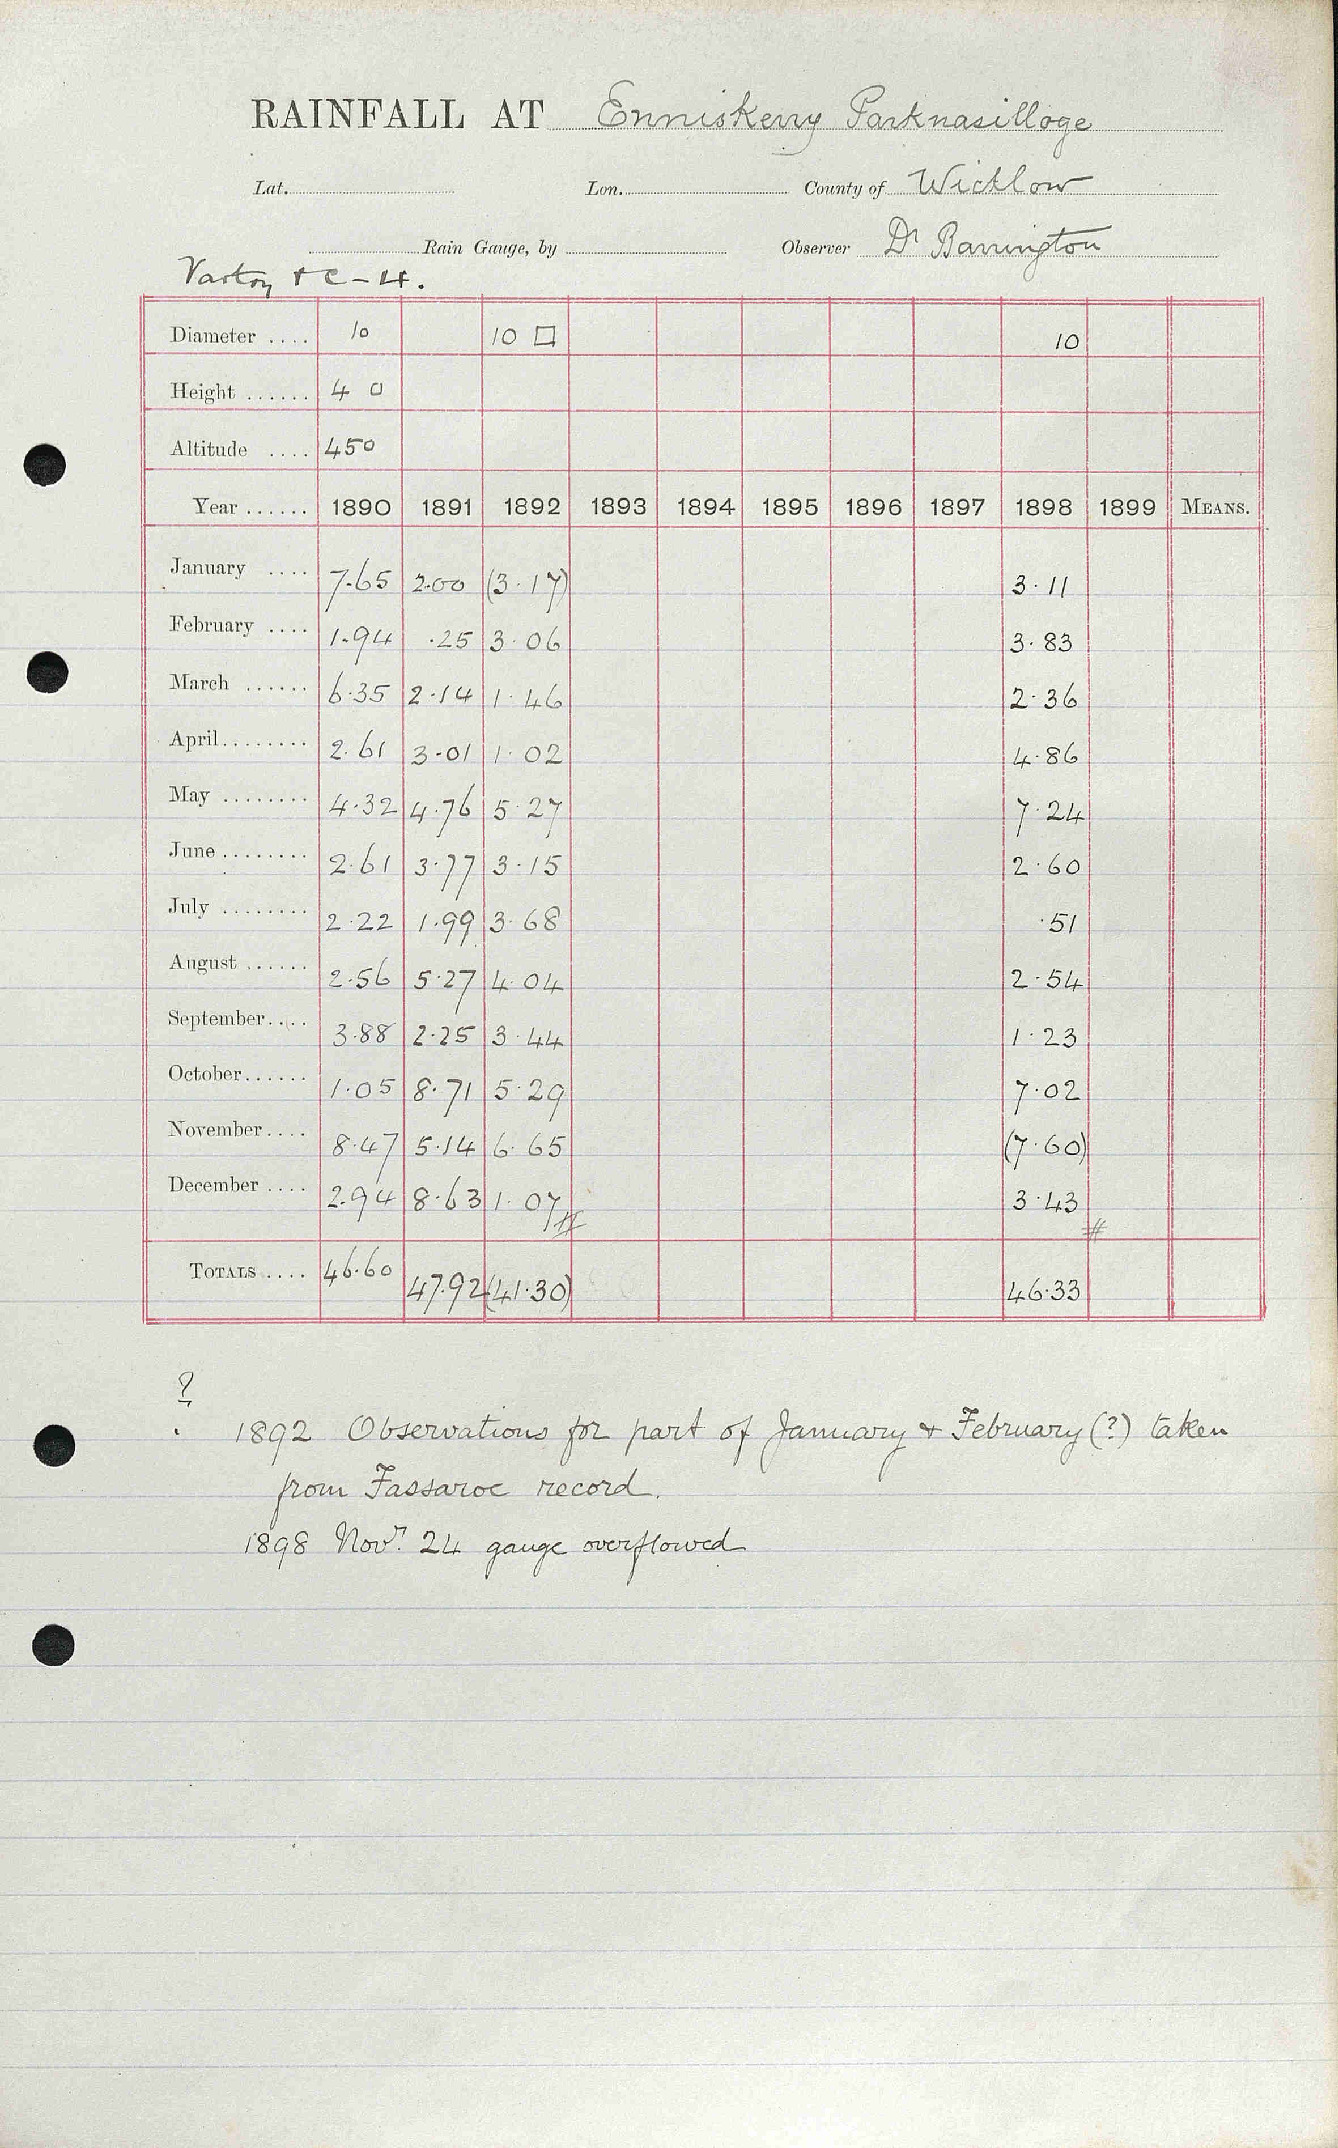 RAINFALL AT Enniskerry Parknasilloge
Lat. Lon. County of Wicklow
Rain Gauge, by Observer Dr Barrington
Vartry & C - 4.
Diameter .... 10 10 □ 10
Height ...... 4 0
Altitude .... 450
Year ...... 1890 1891 1892 1893 1894 1895 1896 1897 1898 1899 MEANS.
January .... 7.65 2.00 (3.17) 3.11
February .... 1.94 .25 3.06 3.83
March ...... 6.35 2.14 1.46 2.36
April........ 2.61 3.01 1.02 4.86
May ........ 4.32 4.76 5.27 7.24
June ........ 2.61 3.77 3.15 2.60
July ........ 2.22 1.99 3.68 .51
August ...... 2.56 5.27 4.04 2.54
September.... 3.88 2.25 3.44 1.23
October...... 1.05 8.71 5.29 7.02
November.... 8.47 5.14 6.65 (7.60)
December .... 2.94 8.63 1.07 # 3.43 #
TOTALS .... 46.60 47.92 (41.30) 46.33
?
1892 Observations for part of January & February (?) taken
from Fassaroe record.
1898 Novr. 24 gauge overflowed